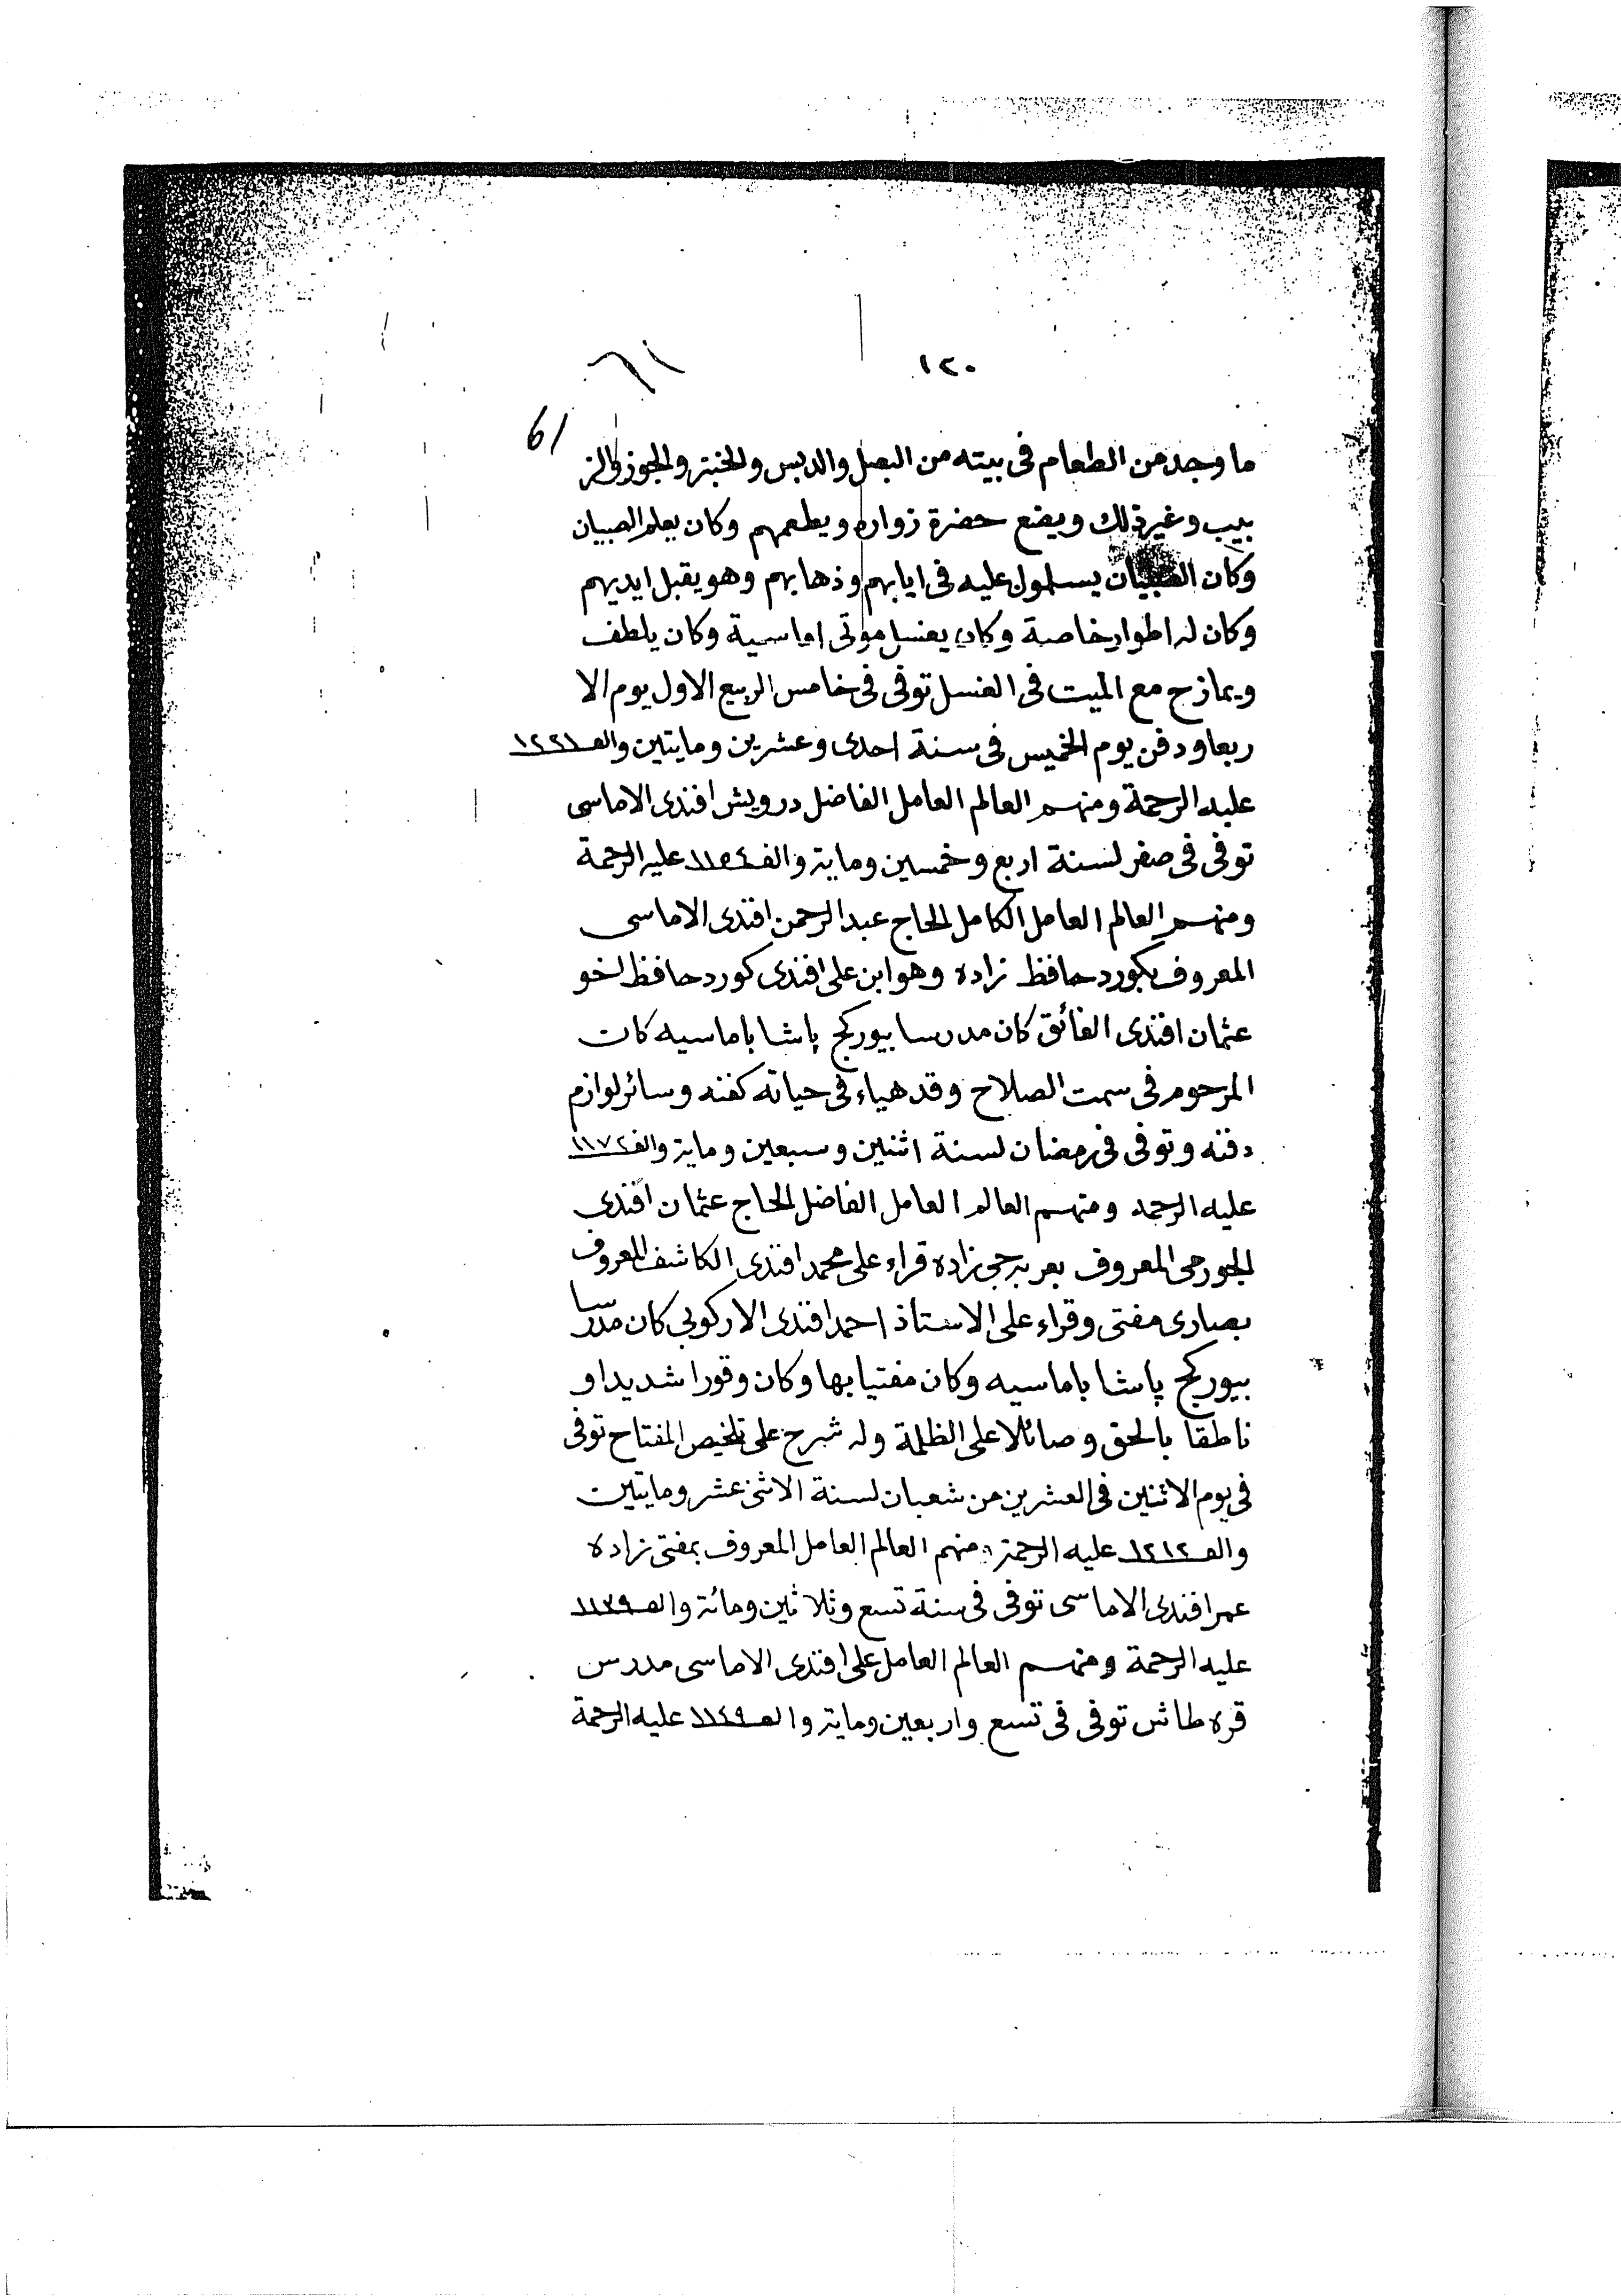 ١٢٠
٦١
61
ما وجد من الطعام فى بيته من البصل والدبس والخبز والجوز والز
بيب وغير ذلك ويضع حضرة زواره ويطعمهم وكان يعلم الصبيان
وكان الصبيان يسلمون عليه فى ايابهم وذهابهم وهو يقبل ايديهم
وكان له اطوار خاصة وكان يغسل موتى اماسية وكان يلطف
ويمازح مع الميت فى الغسل توفى فى خامس الربيع الاول يوم الا
ربعا ودفن يوم الخميس فى سنة احدى وعشرين ومايتين والف ١٢٢١
عليه الرحمة ومنهم العالم العامل الفاضل درويش افندى الاماسى
توفى فى صفر لسنة اربع وخمسين وماية والف ١١٥٤ عليه الرحمة
ومنهم العالم العامل الكامل الحاج عبد الرحمن افندى الاماسى
المعروف بكورد حافظ زاده وهو ابن على افندى كورد حافظ اخو
عثمان افندى الفائق كان مدرسا بيوركج پاشا باماسيه كان
المرحوم فى سمت الصلاح وقد هياء فى حياته كفنه وسائر لوازم
دفنه وتوفى فى رمضان لسنة اثنين وسبعين وماية والف ١١٧٢
عليه الرحمه ومنهم العالم العامل الفاضل الحاج عثمان افندى
الجورمى المعروف بعربه جى زاده قراء على محمد افندى الكاشف المعروف
بصارى مفتى وقراء على الاستاذ احمد افندى الاركوبى كان مدرسا
بيوركج پاشا باماسيه وكان مفتيا بها وكان وقورا شديدا و
ناطقا بالحق وصائلا على الظلمة وله شرح على تلخيص المفتاح توفى
فى يوم الاثنين فى العشرين من شعبان لسنة الاثنى عشر ومايتين
والف ١٢١٢ عليه الرحمة ومنهم العالم العامل المعروف بمفتى زاده
عمر افندى الاماسى توفى فى سنة تسع وثلاثين ومائة والف ١١٣٩
عليه الرحمة ومنهم العالم العامل على افندى الاماسى مدرس
قره طاش توفى فى تسع واربعين وماية والف ١١٤٩ عليه الرحمة